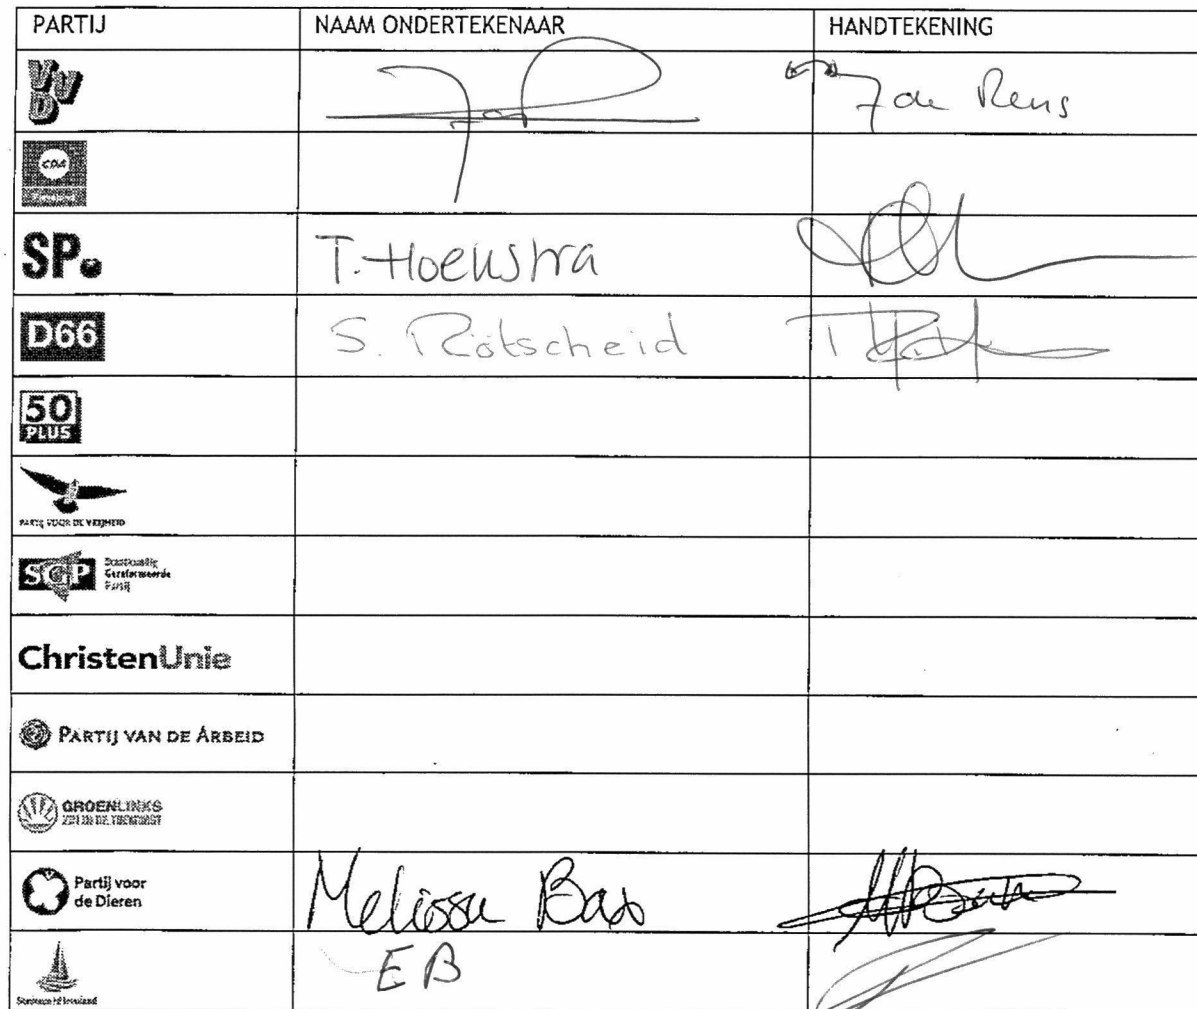 PARTIJ NAAM ONDERTEKENAAR HANDTEKENING
VVD J de Reus
CDA
SP. T. Hoekstra
D66 S. Rötscheid
50 PLUS
PARTIJ VOOR DE VRIJHEID
SGP Staatkundig Gereformeerde Partij
ChristenUnie
PARTIJ VAN DE ARBEID
GROENLINKS
Partij voor de Dieren Melissa Bax
EB